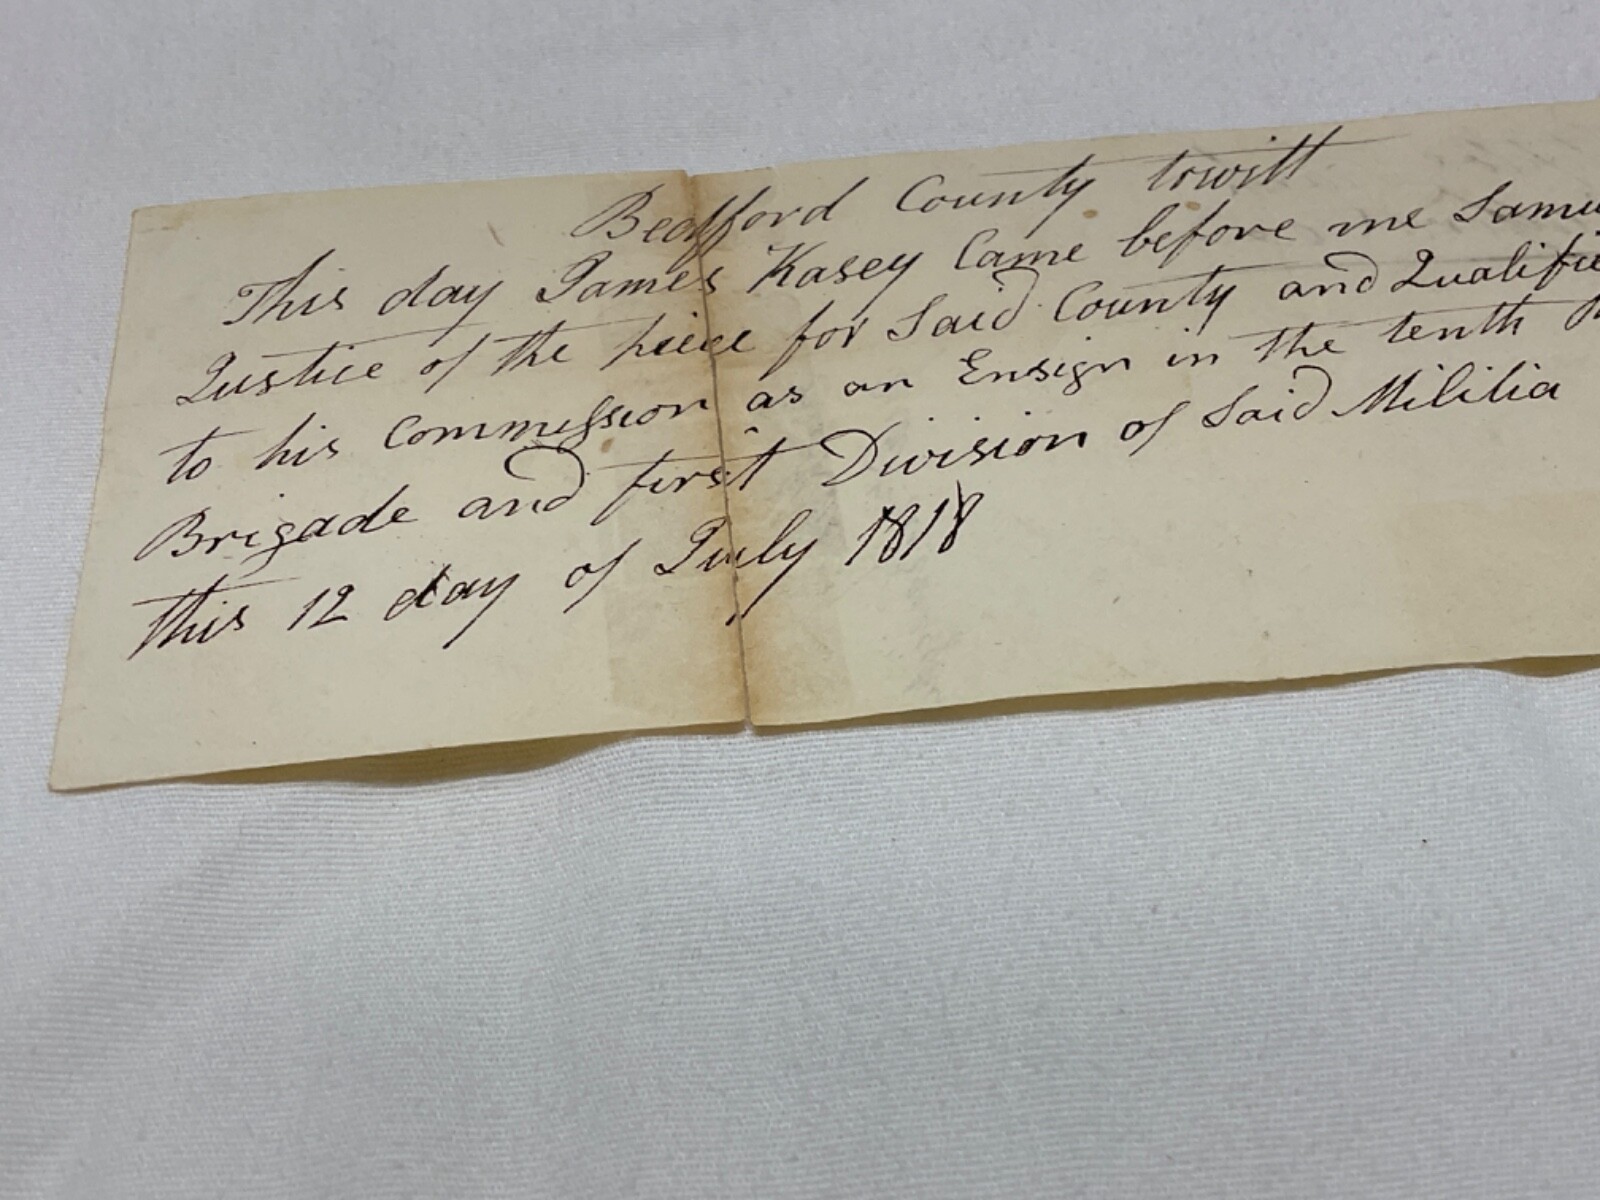 Bedfford County towitt
This day James Kasey Came before me Samu
Justice of the piece for Said County and Qualifie
to his Commission as an Ensign in the tenth
Brigade and first Division of Said Militia
this 12 day of July 1818